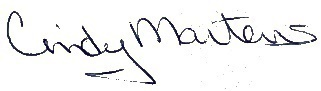 Cindy Martens